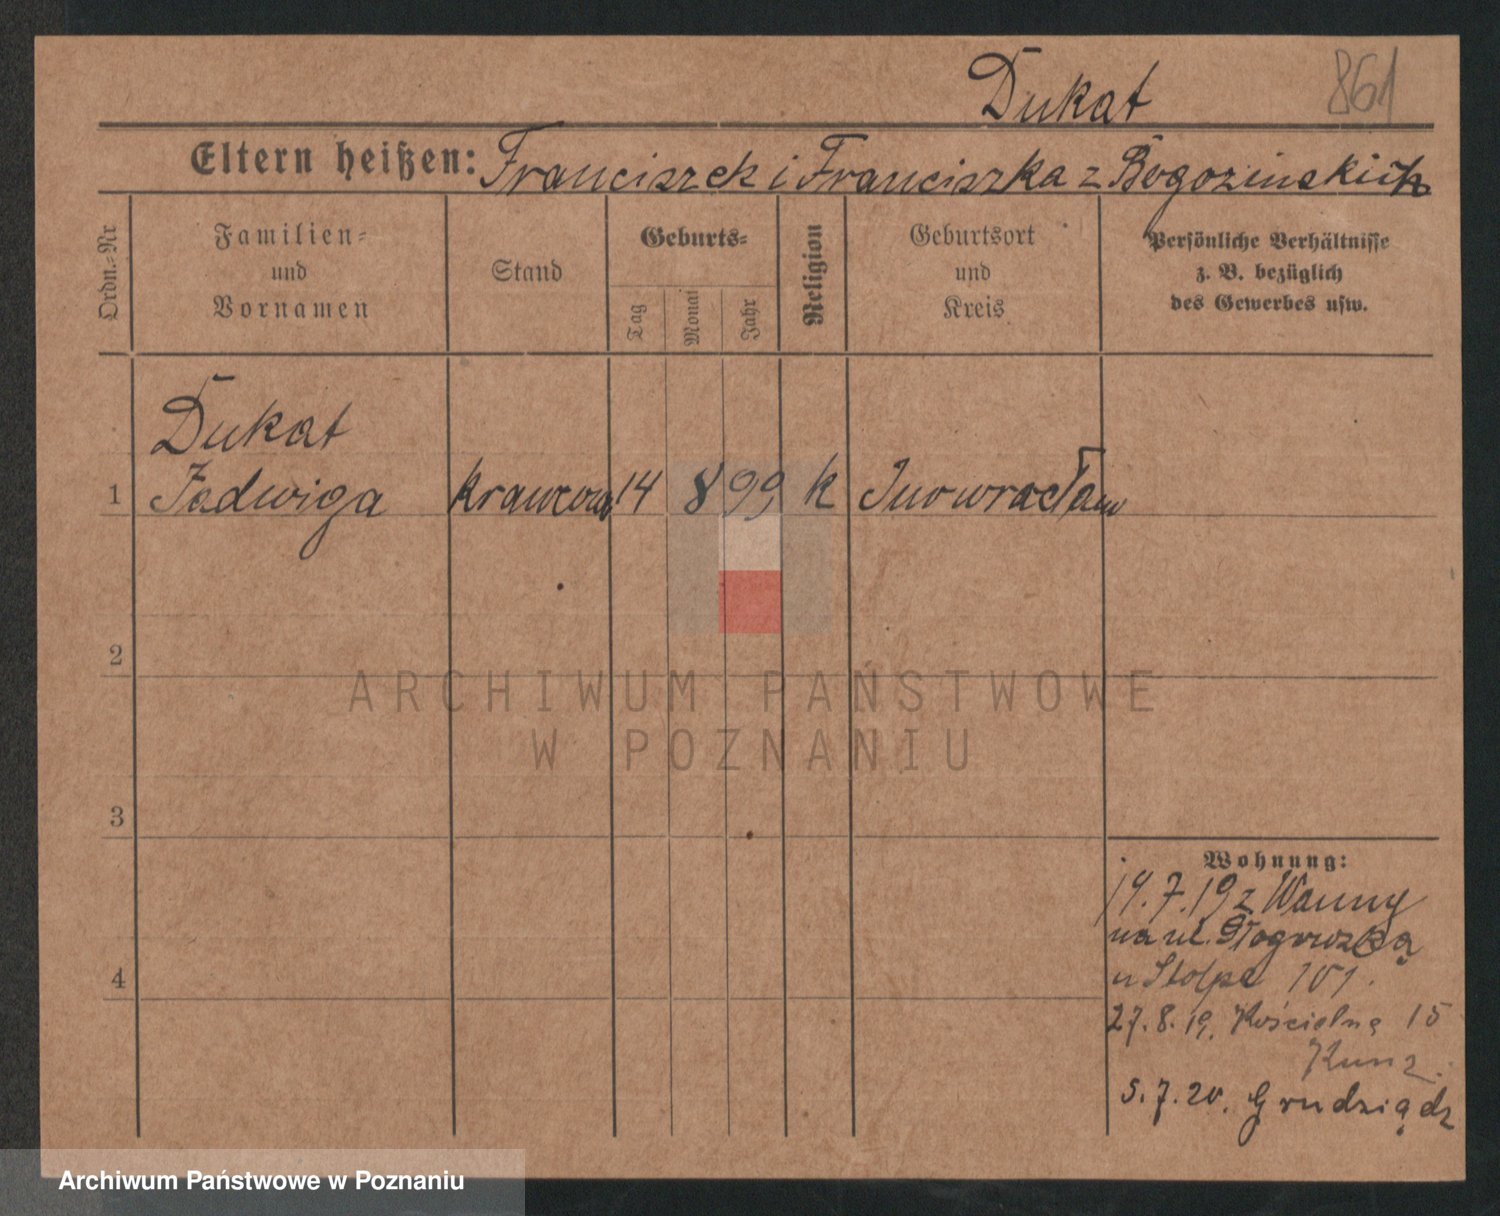 Dukat 861
Eltern heißen: Franciszek i Franciszka z Bogozinskich
Ordn.-Nr
Familien-
und
Vornamen
Stand
Geburts-
Tag
Monat
Jahr
Religion
Geburtsort
und
Kreis
Persönliche Verhältnisse
z. B. bezüglich
des Gewerbes usw.
Dukat
1 Jadwiga krawcowa 14 8 99 k Inowrocław
2
ARCHIWUM PAŃSTWOWE
W POZNANIU
3
Wohnung:
14.7.19 z Wanny
na ul. Głogowską
u Stolpe 101.
4
27.8.19. Kościelna 15
Kunz.
5.7.20. Grudziądz
Archiwum Państwowe w Poznaniu